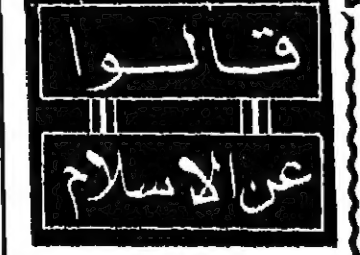 قالوا
عن الاسلام